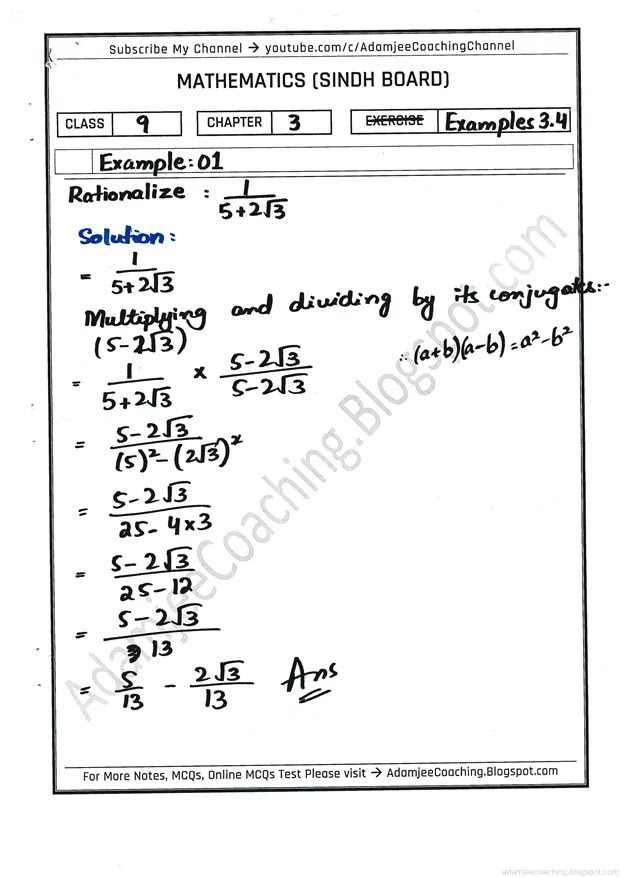 Subscribe My Channel → youtube.com/c/AdamjeeCoachingChannel
MATHEMATICS (SINDH BOARD)
CLASS 9 CHAPTER 3 EXERCISE Examples 3.4
Example: 01
Rationalize : 1/(5+2√3)
Solution:
= 1/(5+2√3)
Multiplying and dividing by its conjugates:-
(5-2√3)
∴ (a+b)(a-b) = a²-b²
= 1/(5+2√3) × (5-2√3)/(5-2√3)
= (5-2√3)/((5)²-(2√3)²)
= (5-2√3)/(25-4×3)
= (5-2√3)/(25-12)
= (5-2√3)/13
= 5/13 - 2√3/13 Ans
AdamjeeCoaching.Blogspot.com
For More Notes, MCQs, Online MCQs Test Please visit → AdamjeeCoaching.Blogspot.com
adamjeecoaching.blogspot.com